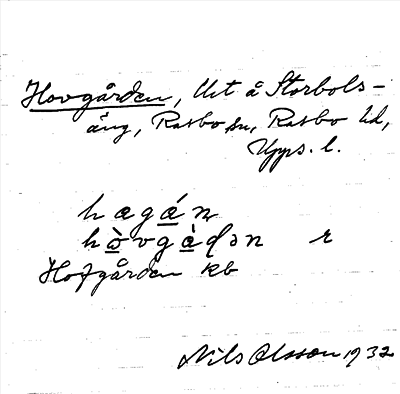 Hovgården, Ut å Storbols-
äng, Rasbo sn, Rasbo hd,
Upps. l.
hagán
hòvgàdən r
Hofgården kb
Nils Olsson 1932